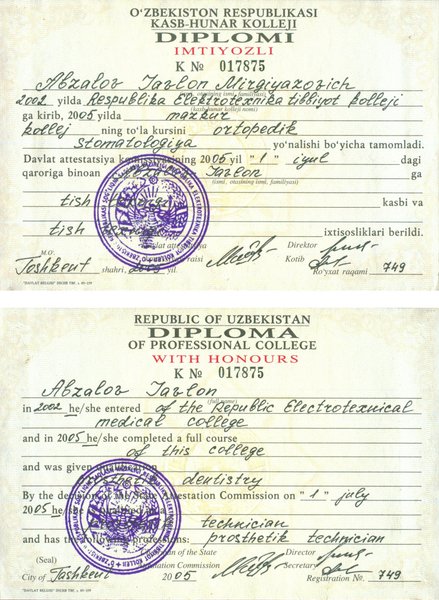 O'ZBEKISTON RESPUBLIKASI
KASB-HUNAR KOLLEJI
DIPLOMI
IMTIYOZLI
K № 017875
Abzalov Javlon Mirgiyazovich
(ismi, otasining ismi, familiyasi)
2002 yilda Respublika Elektrotexnika tibbiyot kolleji
(kasb-hunar kolleji nomi)
ga kirib, 2005 yilda mazkur
kollej ning to'la kursini ortopedik
stomatologiya yo'nalishi bo'yicha tamomladi.
Davlat attestatsiya komissiyasining 2005 yil "1" iyul dagi
qaroriga binoan Javlon ga
(ismi, otasining ismi, familiyasi)
tish kasbi va
tish ixtisosliklari berildi.
M.O. Davlat attestatsiya Direktor
Toshkent shahri, 2005 yil. Kotib Ro'yxat raqami 749
"DAVLAT BELGISI" DICHB TBF.
REPUBLIC OF UZBEKISTAN
DIPLOMA
OF PROFESSIONAL COLLEGE
WITH HONOURS
K № 017875
Abzalov Javlon
(full name)
in 2002 he/she entered of the Republic Electrotexnical
medical college
and in 2005 he/she completed a full course
of this college
and was given qualification
prosthetic dentistry
By the decision of the State Attestation Commission on "1" july
2005 he/she
technician
and has the following professions: prosthetik technician
(Seal) of the State Director
Attestation Commission Secretary
City of Tashkent 2005 Registration № 749
"DAVLAT BELGISI" DICHB TBF.